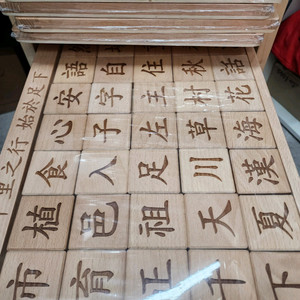 語自住秋話
安字主村花
心子左草海
食入足川漢
植邑祖天夏
市育正十下
里之行 始於足下